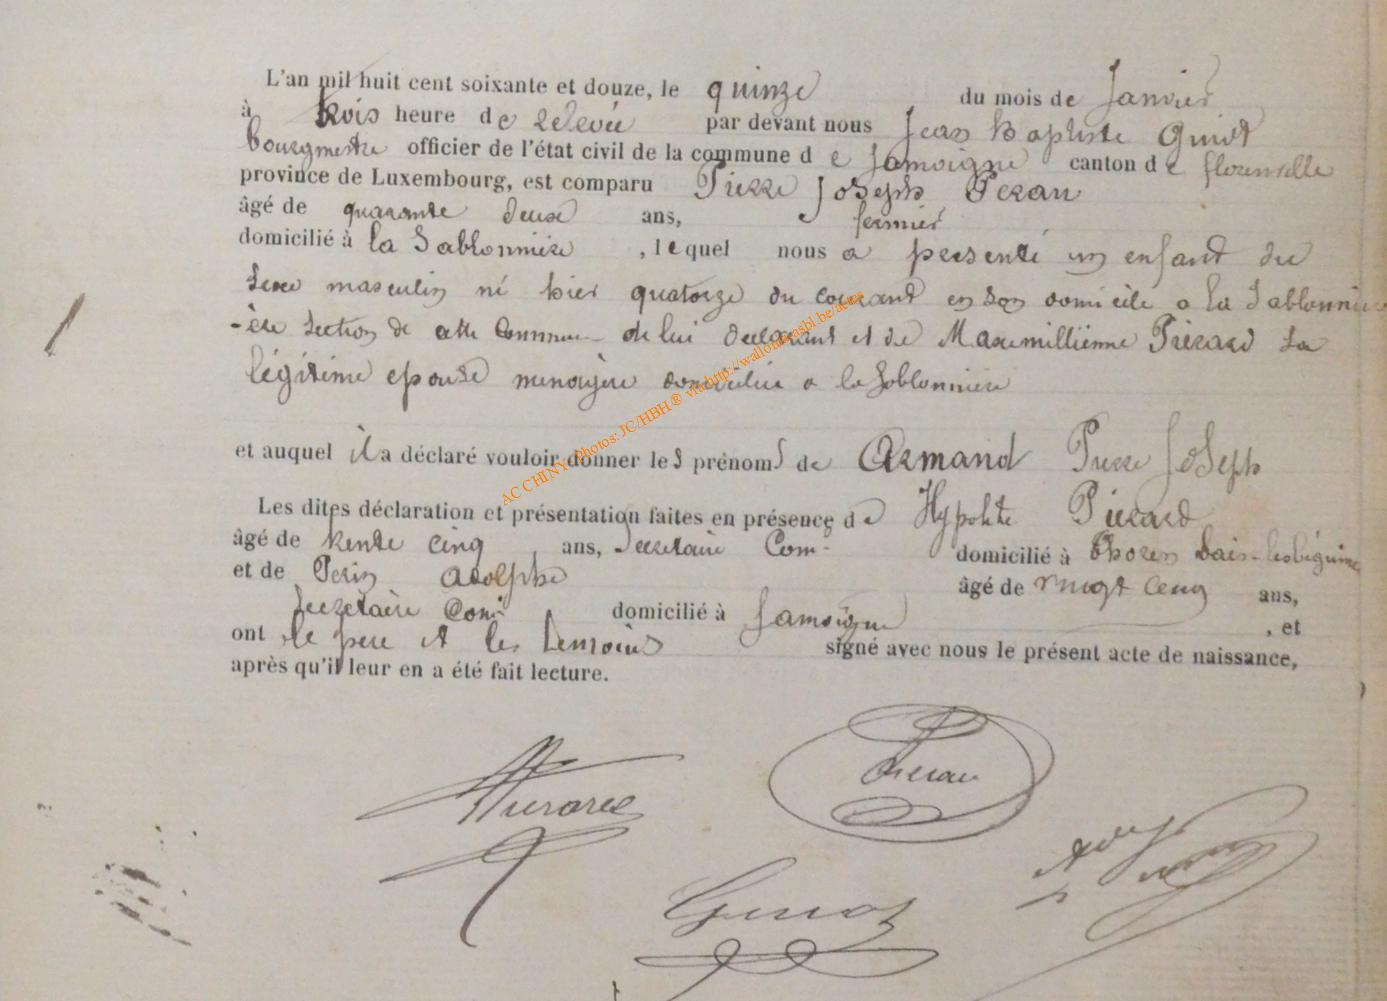 L'an mil huit cent soixante et douze, le quinze du mois de Janvier
à trois heure de relevée par devant nous Jean Baptiste Guiot
bourgmestre officier de l'état civil de la commune de Jamoigne canton de florenville
province de Luxembourg, est comparu Pierre Joseph Peran
âgé de quarante deux ans, fermier
domicilié à la Sablonnière, lequel nous a presenté un enfant du
sexe masculin né hier quatorze du courant en son domicile a la Sablonni
-ère section de cette commune de lui declarant et de Maxemillienne Pierard sa
légitime epouse menagère domiciliée a la Sablonnière
et auquel il a déclaré vouloir donner les prénoms de Armand Pierre Joseph
Les dites déclaration et présentation faites en présence de Hypolite Pierard
âgé de trente cinq ans, Secretaire Com. domicilié à
et de Perin Adolphe âgé de vingt cinq ans,
Secretaire Com. domicilié à Jamoigne, et
ont le père et les temoins signé avec nous le présent acte de naissance,
après qu'il leur en a été fait lecture.
AC CHINY - Photos: JC/HBH ® via http://wallonia.asbl.be/actes
Pierard
Peran
Guiot